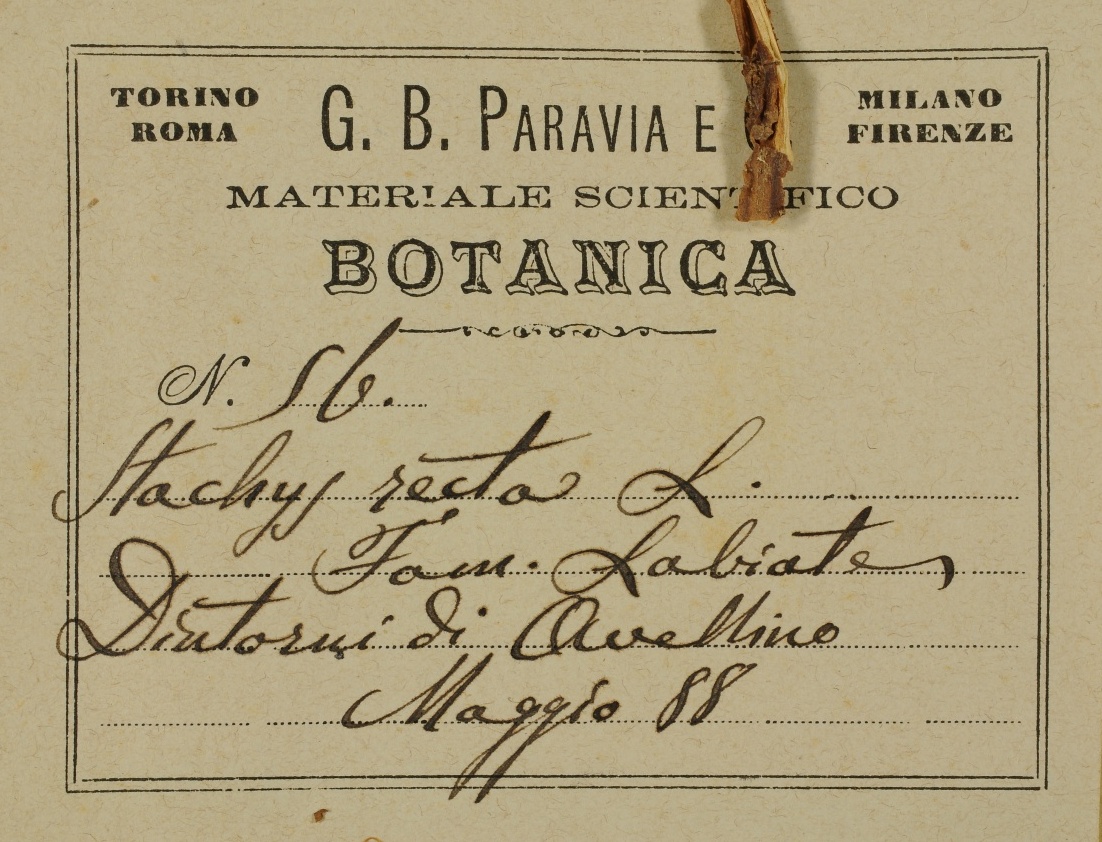 TORINO G. B. PARAVIA E MILANO
ROMA FIRENZE
MATERIALE SCIENTIFICO
BOTANICA
N. 56.
Stachys recta L.
Fam. Labiate
Dintorni di Avellino
Maggio 88